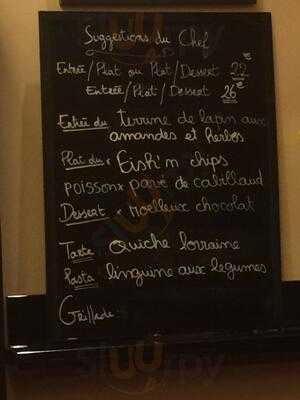 Suggestions du Chef
Entrée/Plat ou Plat/Dessert 22€
Entrée/Plat/Dessert 26€
Entrée du terrine de lapin aux
amandes et herbes
Plat du Fish'n chips
poisson pavé de cabillaud
Dessert moelleux chocolat
Tarte quiche lorraine
Pasta linguine aux legumes
Grillade